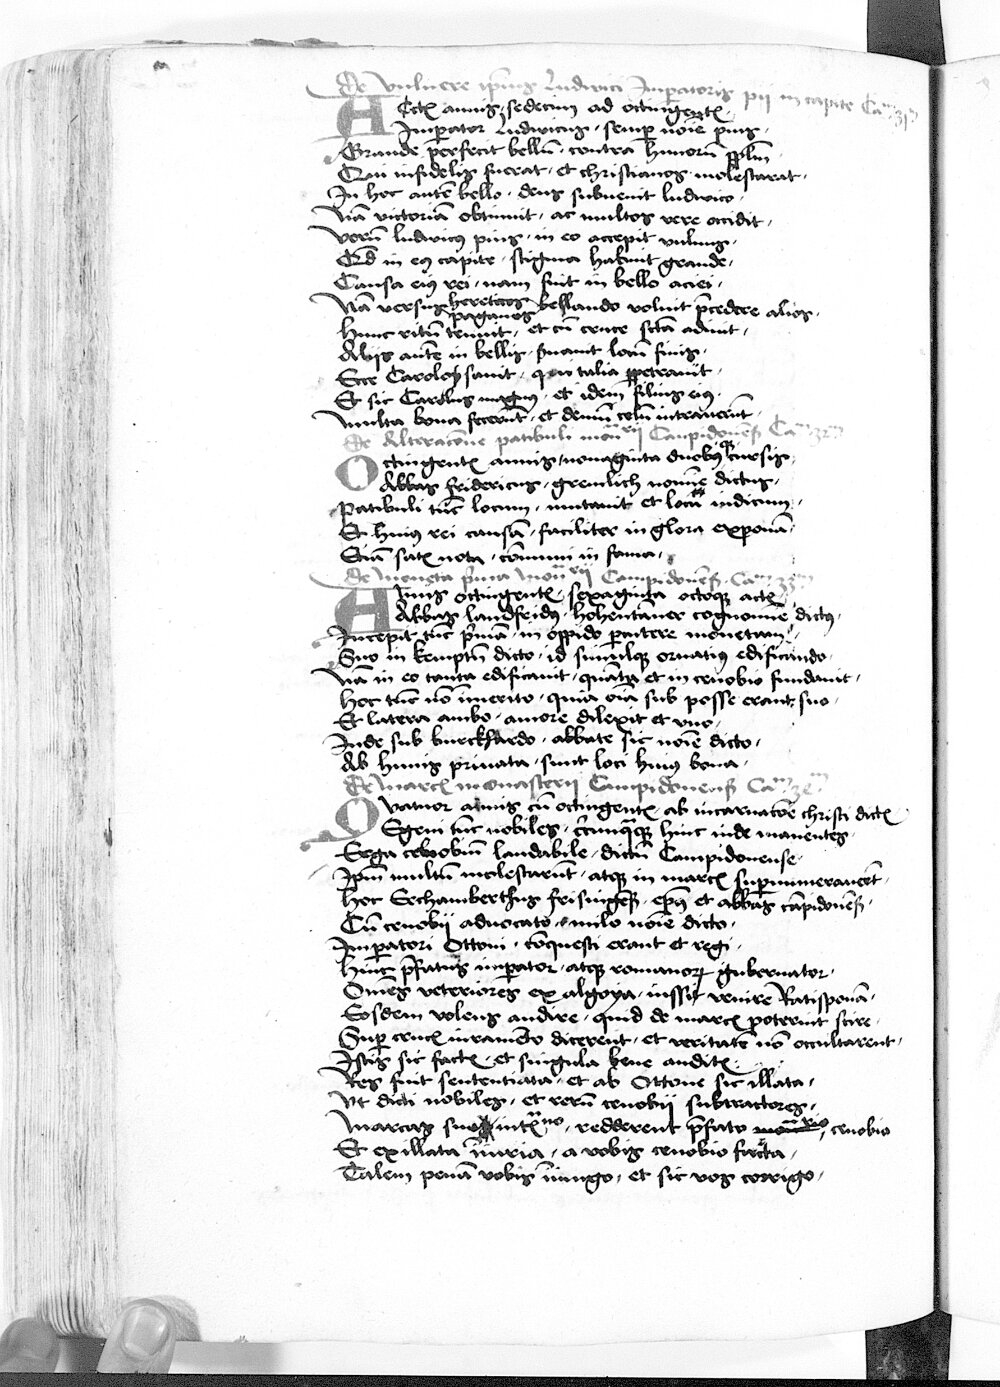 De vulnere ipius Ludwici Imperatoris pii in capite Ca^m 31^m
Actis annis, sedecim ad octingentis,
Imperator Ludwicus, semper noie pius,
Grande perfecit bellum, contra hunorum pplm
Qui infidelis fuerat, et christianos molestarat,
In hoc autē bello, deus subuenit ludwico,
Nā victoriā obtinuit, ac multos vere occidit,
Verū ludwicus pius, in eo accepit vulnus,
Qd in eius capite, stigma habuit grande,
Causa eius rei, nam fuit in bello aciei,
Nā versus hereticos paganos bellando voluit pcedere alios,
Hunc ritū tenuit, et cū cruce sctā adiuit,
Alijs autē in bellis, seruauit locū finis,
Ecce Carolꝯ sanit, qui talia ppetrauit,
Et sic Carolus magnus, et idem filius eius,
Multa bona fecerūt, et demū celū intrauerūt,
De Alteracōne patibuli mon^rii Campidoneñ Ca^m 32^m
Octingentis annis, nonaginta duobus cursis,
Abbas fridericus, gremlich nomine dictus,
Patibuli tūc locum, mutauit et locū iudicium,
Et huius rei causā, faciliter in glosa exponā,
Etiā satis nota, cōmuni in fama,
De Moneta prima Mon^rii Campidoneñ Ca^m 33^m
Annis octingentis, sexaginta octoque actis
Abbas landfridus, hohentanner cognomine dictus,
Incepit tūc primā, in oppido percutere monetam,
Suo in kemptū dicto, id simulque ornatius edificando,
Nā in eo tanta edificauit, quāta et in cenobio fundauit,
Hoc tūc nō inmerito, quia oīa sub posse erant suo,
Et latera ambo, amore dilexit et vno,
Inde sub burckhardo, abbate sic noīe dicto,
Ab hunis priuata, sunt loci huius bona,
De marcis monasterii Campidoneñ Ca^m 34^m
Quatuor annis cū octingentis, ab incarnacōne christi dictis
Egeni tūc nobiles, circumquaque hinc inde manentes,
Erga cenobium laudabile, dictū Campidonense,
Ipm multū molestarūt, atque in marcis supernumerauerūt,
Hoc Sechamberthus frisingeñ, epus et abbas cāpidoneñ,
Cū cenobii aduocato, milo noīe dicto,
Imperatori Ottoni, cōquesti erant et regi,
Hinc prefatus imperator, atque romanorum gubernator,
Omēs veteriores ex algoya, iussit venire Ratisponā,
Eosdem volens audire, quid de marcis poterint scire,
Super crucis iuramēto dicerent, et veritatē nō occultarent,
Istis sic factis, et singula bene auditis,
Res fuit sententiata, et ab Ottone sic illata,
Vt dicti nobiles, et rerū cenobii subtractores,
Marcas suo, redderent prefato cenobio
Et ex illata iniuria, a vobis cenobio facta,
Talem penā vobis iniungo, et sic vos corrigo,